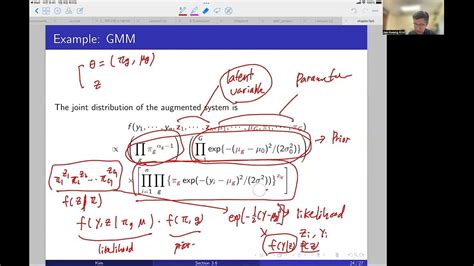 Example: GMM
θ = (π_g, μ_g)
z
latent variable
Parameter
The joint distribution of the augmented system is
f(y_1, ⋯, y_n, z_1, ⋯
∝ ∏ π_g^{α_g−1} ∏_{g}^{G} exp{−(μ_g − μ_0)²/(2σ_0²)}
Prior
× [∏_{i=1}^{n} ∏ {π_g exp(−(y_i − μ_g)²/(2σ²))}^{z_{ig}}]
π_1^{z_1} π_2^{z_2} ⋯ π_G^{z_G}
f(z|π)
exp{−½(y−μ_g)²} likelihood
f(y, z | π, μ) · f(π, μ)
z_i, y_i
likelihood
prior
f(y|z) f(z)
Kim
Section 3-6
24 / 27